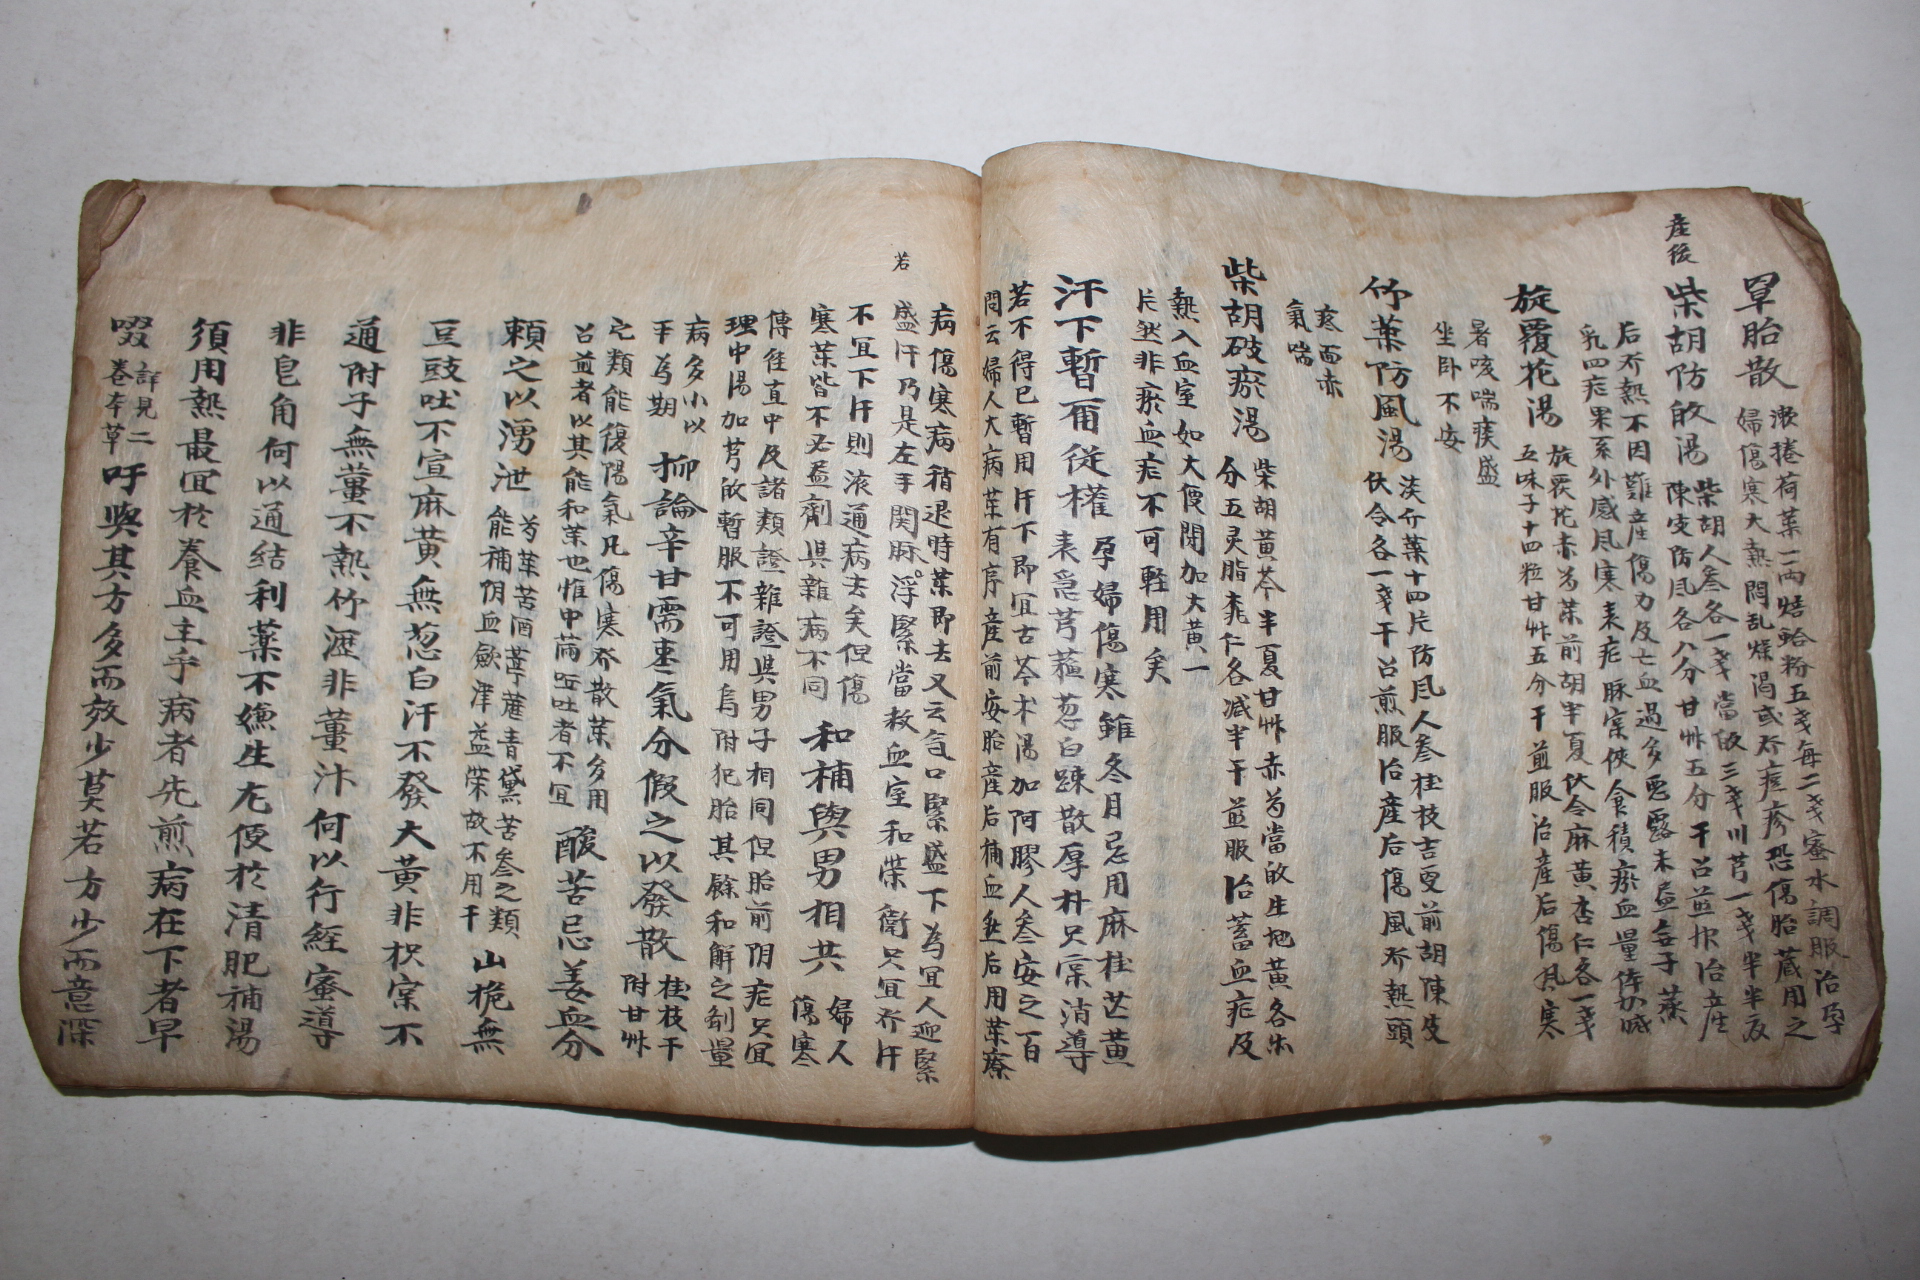 産後
罩胎散
漱捲荷葉二両焙蛤粉五戔每二戔蜜水調服治孕
婦傷寒大熱悶乱燥渴或发痘疹恐傷胎蔵用之
柴胡防㱾湯
柴胡人叁各一戔當㱾三戔川芎一戔半半夏
陳皮防風各八分甘艸五分干召煎服治産
后发熱不因難産傷力及亡血過多惡露未盡每子蒸
乳四症果系外感風寒表症脉実俠食積瘀血量倍加减
旋覆花湯
旋覆花赤芍葉前胡半夏伏令麻黃杏仁各一戔
五味子十四粒甘艸五分干煎服治産后傷風寒
暑咳喘痰盛
坐卧不安
竹葉防風湯
淡竹葉十四片防風人叁桂枝吉更前胡陳皮
伏令各一戔干召煎服治産后傷風发熱頭
疼面赤
氣喘
柴胡破瘀湯
柴胡黃芩半夏甘艸赤芍當㱾生地黃各
分五灵脂桃仁各减半干煎服治蓄血症及
熱入血室如大便閉加大黃一
片然非瘀血症不可輕用矣
汗下暫而從權
孕婦傷寒雖冬月忌用麻桂芒黃
表急芎蘓葱白踈散厚朴只宲消導
若不得已暫用汗下即宜古芩术湯加阿膠人叁安之百
問云婦人大病葉有序産前安胎産后補血然后用葉療
病傷寒病稍退時葉即去又云气口緊盛下為宜人迎緊
若
盛汗乃是左手関脉浮緊當救血室和荣衛只宜发汗
不宜下汗則液通病去矣但傷
寒葉皆不必盡劑與雜病不同
和補與男相共
婦人
傷寒
傳隹直中及諸類證雜證與男子相同但胎前阴症只宜
理中湯加芎㱾暫服不可用烏附犯胎其餘和解之剤量
病多小以
平為期
抑論辛甘需棗氣分假之以發散
桂枝干
附甘艸
之類能復陽氣凡傷寒发散葉多用
召煎者以其能和葉也惟中滿嘔吐者不宜
酸苦忌姜血分
賴之以湧泄
芍葉苦酒葶藶青黛苦叁之類
能補阴血歛津益荣故不用干
山桅無
豆豉吐不宣麻黃無葱白汗不發大黃非枳宲不
通附子無薑不熱竹瀝非薑汁何以行經蜜導
非皂角何以通結利葉不嫌生尤便於清肥補湯
須用熱最宜於養血主乎病者先煎病在下者早
啜
詳見二
卷本草
吁與其方多而效少莫若方少而意深